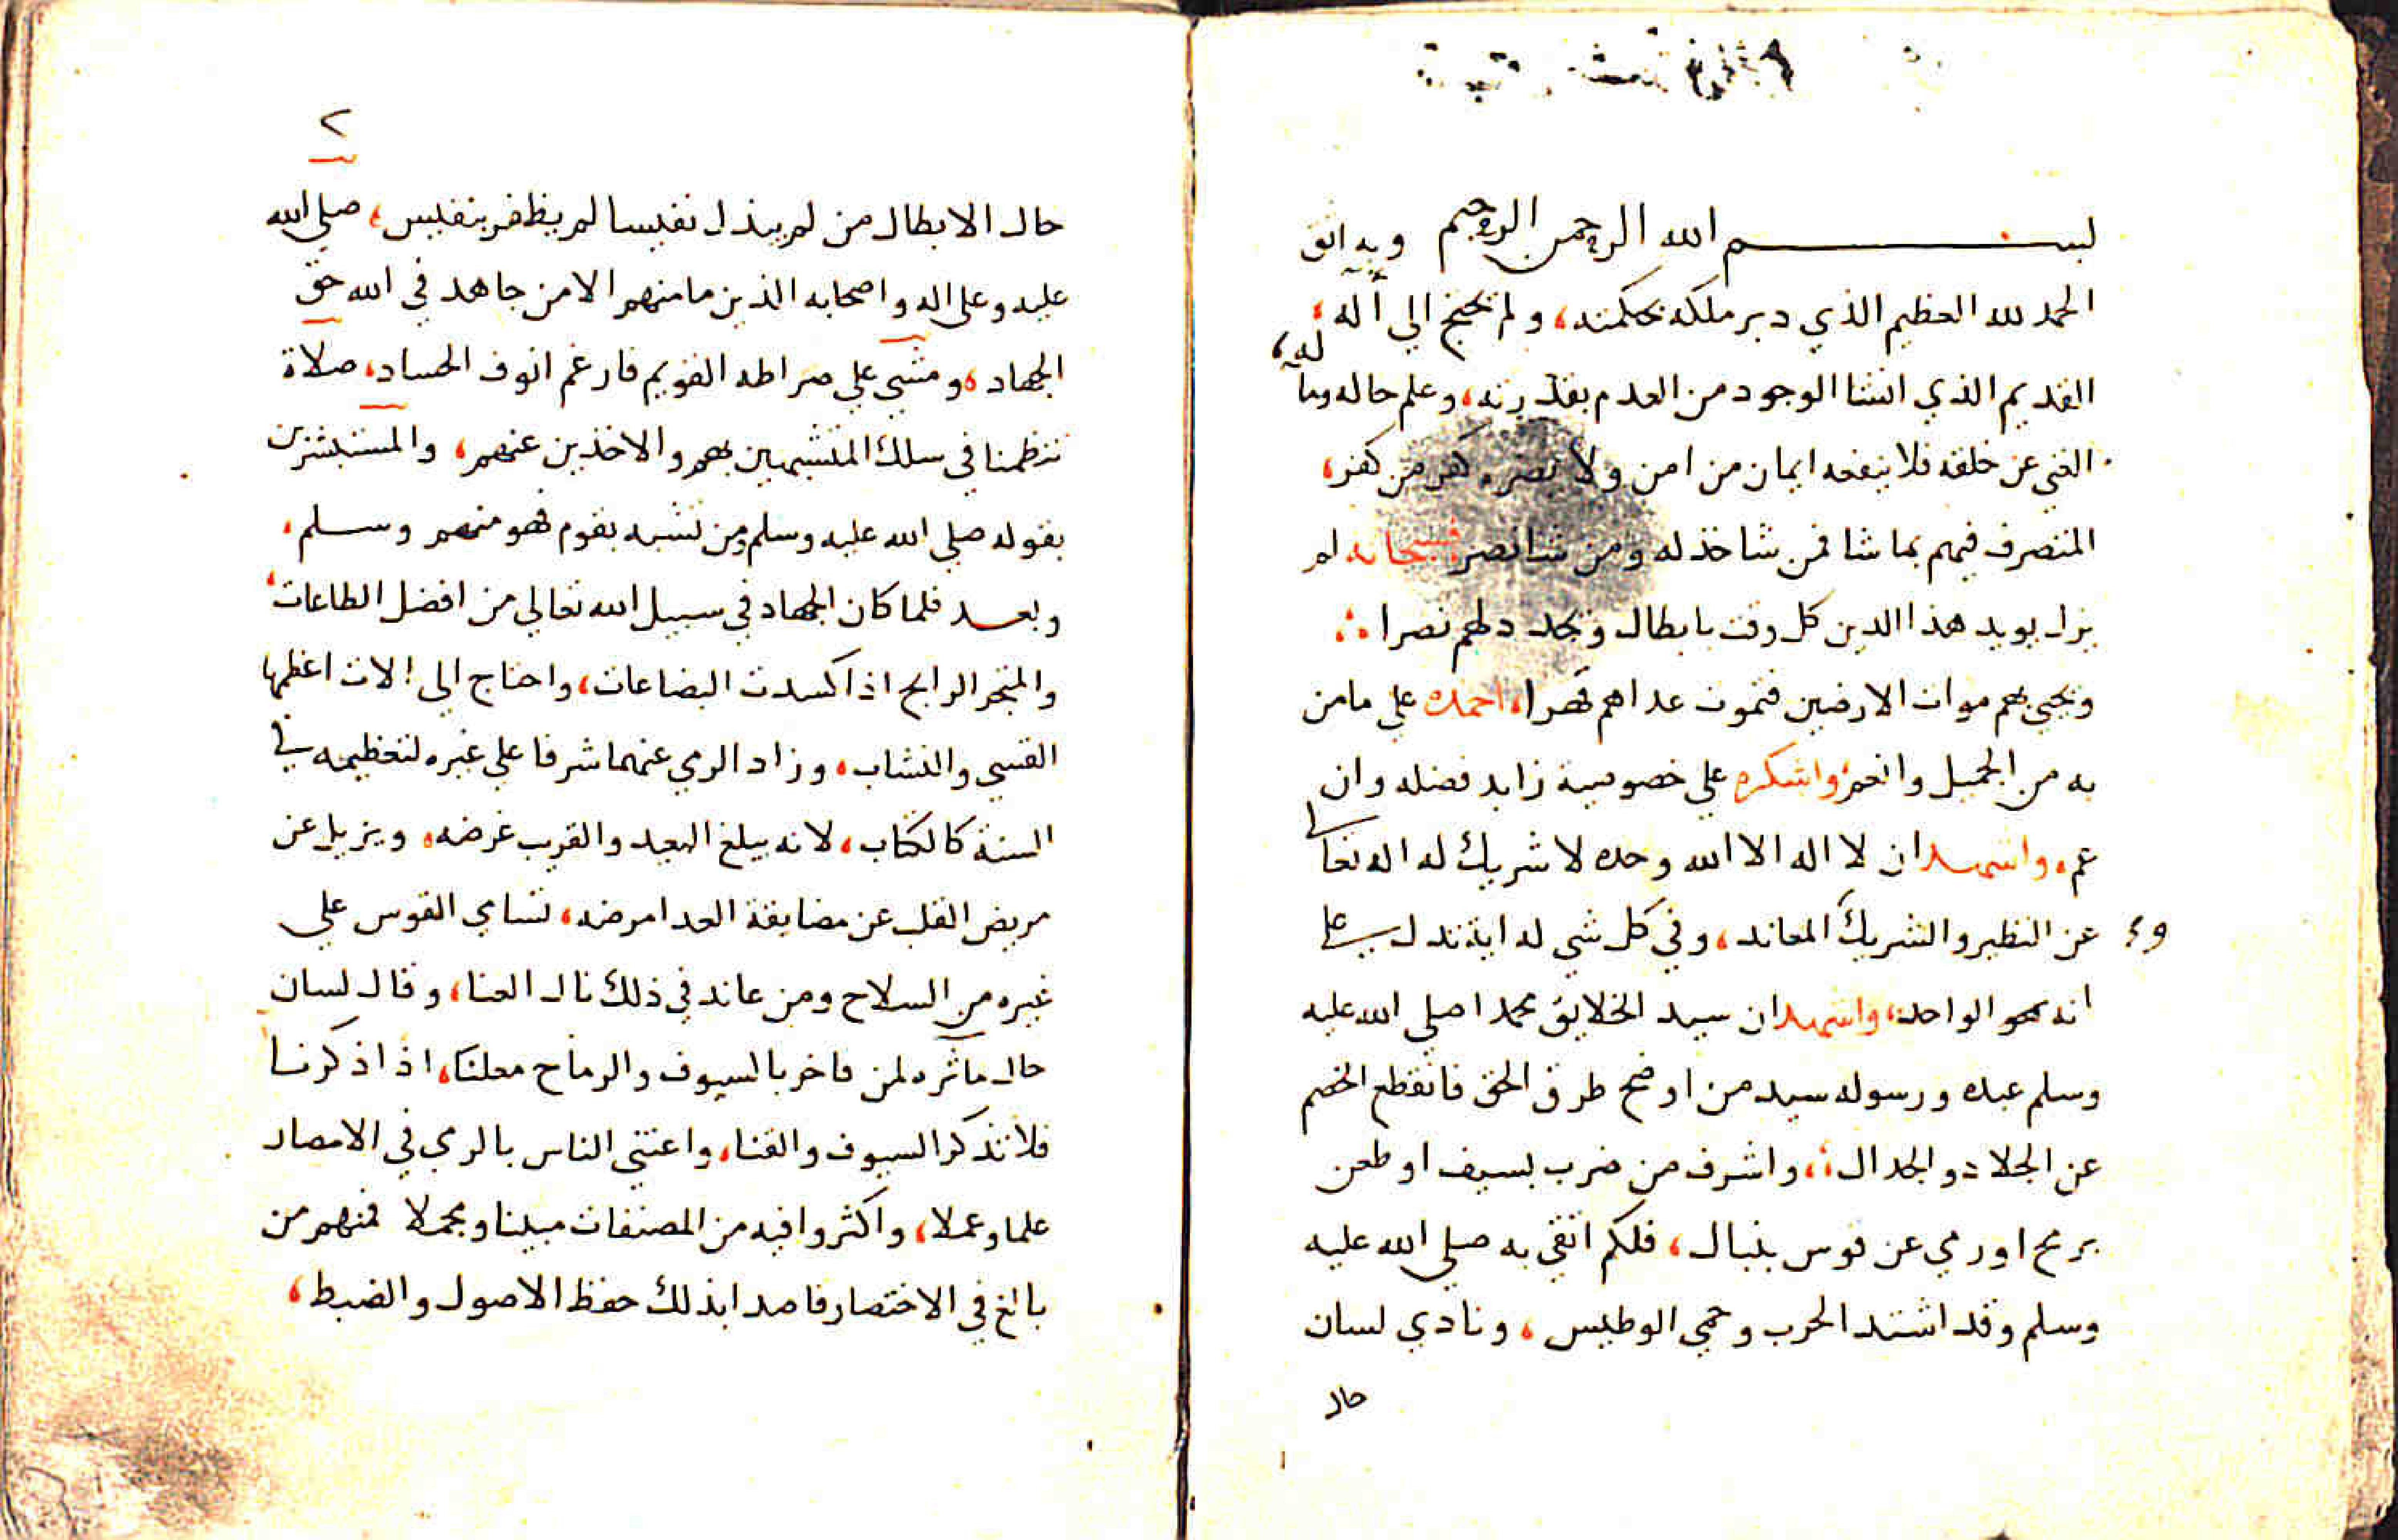 بســـــم الله الرحمن الرحيم وبه اثق
الحمد لله العظيم الذي دبر ملكه بحكمته، ولم يحتج الي آله،
القديم الذي انشا الوجود من العدم بقدرته، وعلم حاله ومآله،
الغني عن خلقه فلا ينفعه ايمان من امن ولا يضره كفر من كفر،
المتصرف فيهم بما شا فمن شا خذله ومن شا نصر فسبحانه لم
يزل يويد هذا الدين كل وقت بابطال ويجدد لهم نصرا
ويحيي بهم موات الارضين فتموت عداهم قهرا، احمده علي ما من
به من الجميل وانعم، واشكره علي خصوصية زايد فضله وان
عم، واشهد ان لا اله الا الله وحده لا شريك له اله تعالى
عن النظير والشريك المعاند، وفي كل شي له اية تدل على
انه هو الواحد، واشهد ان سيد الخلايق محمدا صلي الله عليه
وسلم عبده ورسوله سيد من اوضح طرق الحق فانقطع الخصم
عن الجلاد والجدال، واشرف من ضرب بسيف او طعن
برمح او رمي عن قوس بنبال، فلكم اتقي به صلي الله عليه
وسلم وقد اشتد الحرب وحمي الوطيس، ونادي لسان
حال
٢
حال الابطال من لم يبذل نفيسا لم يظفر بنفيس، صلي الله
عليه وعلي اله واصحابه الذين ما منهم الا من جاهد في الله حق
الجهاد، ومشي علي صراطه القويم فارغم انوف الحساد، صلاة
تنظمنا في سلك المتشبهين بهم والاخذين عنهم، والمستبشرين
بقوله صلي الله عليه وسلم من تشبه بقوم فهو منهم وسلم،
وبعد فلما كان الجهاد في سبيل الله تعالي من افضل الطاعات،
والمتجر الرابح اذا كسدت البضاعات، واحتاج الي الات اعظمها
القسي والنشاب، وزاد الرمي عنهما شرفا علي غيره لتعظيمه في
السنة كالكتاب، لانه يبلغ البعيد والقريب غرضه، ويزيل عن
مريض القلب عن مضايقة العدا مرضه، تسامي القوس علي
غيره من السلاح ومن عاند في ذلك نال العنا، وقال لسان
حال مآثره لمن فاخر بالسيوف والرماح معلنا، اذا ذكرنا
فلا تذكر السيوف والقنا، واعتني الناس بالرمي في الامصار
علما وعملا، واكثروا فيه من المصنفات مبينا ومجملا فمنهم من
بالغ في الاختصار قاصدا بذلك حفظ الاصول والضبط،